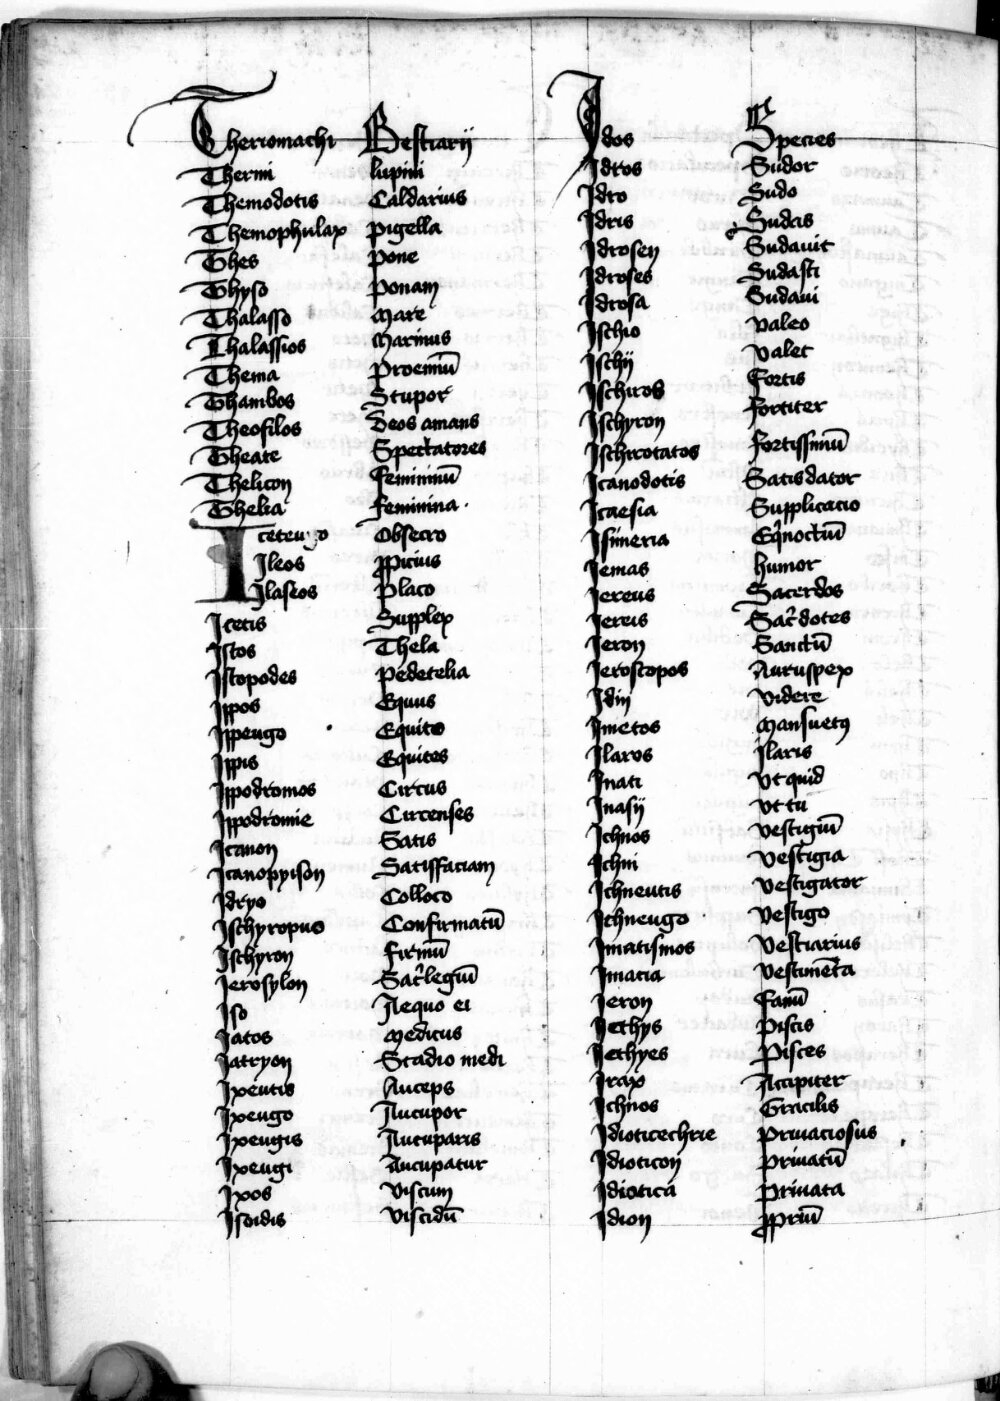 Theriomachi Bestiarij
Thermi lupini
Themodotis Caldarius
Themophulax pigella
Thes pone
Thyso ponam
Thalasso Mare
Thalassios Marinus
Thema Proemiū
Thambos Stupor
Theofilos Deos amans
Theate Spectatores
Thelicon Femininū
Thelia Feminina
Iceteugo Obsecro
Ileos ꝓpicius
Ilaseos Placo
Icetis Supplex
Istos Thela
Istopodes Pedetelia
Ippos Equus
Ippeugo Equito
Ippis Equites
Ippodromos Circus
Ippodromie Circenses
Icanon Satis
Icanopyison Satisffaciam
Idryo Colloco
Ischyropuo Confirmatū
Ischyron Firmū
Ierosylon Sacͬlegiū
Iso Aequo ei
Iatos Medicus
Iatryon Stadio medi
Ixeutis Auceps
Ixeugo Aucupor
Ixeugis Aucuparis
Ixeugi Aucupatur
Ixos Viscum
Isoidis Viscidū
Idos Species
Idros Sudor
Idro Sudo
Idris Sudas
Idrosen Sudauit
Idroses Sudasti
Idrosa Sudaui
Ischio Valeo
Ischij Valet
Ischiros Fortis
Ischyron Fortiter
Ischirotatos Fortissimū
Icanodotis Satisdator
Icaesia Supplicatio
Isimeria Eqͥnoctiū
Iemas humor
Iereus Sacerdos
Iereis Sacͬdotes
Ieron Sanctū
Ieroscopos Auruspex
Idin Videre
Imetos Mansuetꝰ
Ilaros Ilaris
Inati Vt quid
Inasij Vt tu
Ichnos Vestigiū
Ichni Vestigia
Ichneutis Vestigator
Ichneugo Vestigo
Imatismos Vestiarius
Imatia Vestimēta
Ieron Fanū
Icthys Piscis
Icthyes Pisces
Irax Accipiter
Ichnos Gracilis
Idioticechrie Priuaciosus
Idioticon Priuatū
Idiotica Priuata
Idion ꝓpriū